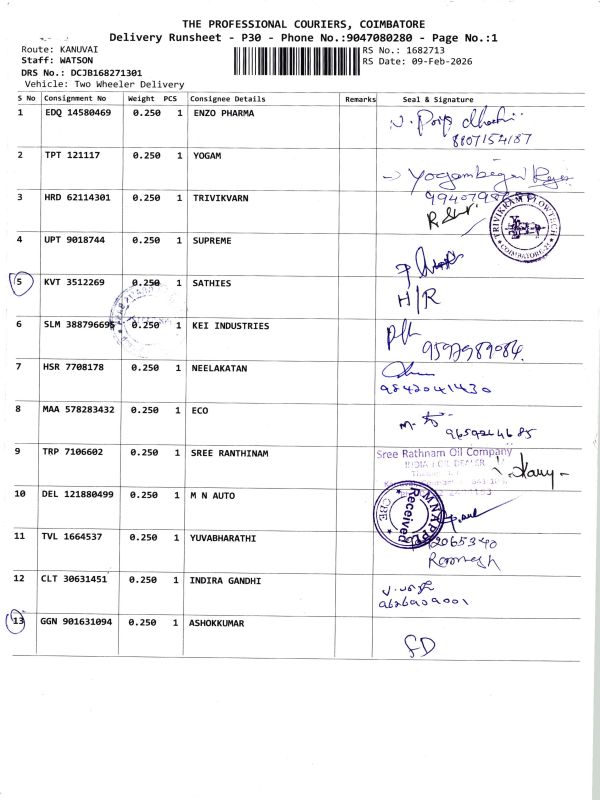 THE PROFESSIONAL COURIERS, COIMBATORE
Delivery Runsheet - P30 - Phone No.:9047080280 - Page No.:1
Route: KANUVAI
RS No.: 1682713
Staff: WATSON
RS Date: 09-Feb-2026
DRS No.: DCJB168271301
Vehicle: Two Wheeler Delivery
S No Consignment No Weight PCS Consignee Details Remarks Seal & Signature
1 EDQ 14580469 0.250 1 ENZO PHARMA
8807154187
2 TPT 121117 0.250 1 YOGAM
3 HRD 62114301 0.250 1 TRIVIKVARN
TRIVIKRAM FLOWTECH COIMBATORE
4 UPT 9018744 0.250 1 SUPREME
5 KVT 3512269 0.250 1 SATHIES
H/R
6 SLM 388796695 0.250 1 KEI INDUSTRIES
7 HSR 7708178 0.250 1 NEELAKATAN
9842041430
8 MAA 578283432 0.250 1 ECO
9 TRP 7106602 0.250 1 SREE RANTHINAM
Sree Rathnam Oil Company
INDIA OIL DEALER
10 DEL 121880499 0.250 1 M N AUTO
Received
CBE
11 TVL 1664537 0.250 1 YUVABHARATHI
12 CLT 30631451 0.250 1 INDIRA GANDHI
9626909001
13 GGN 901631094 0.250 1 ASHOKKUMAR